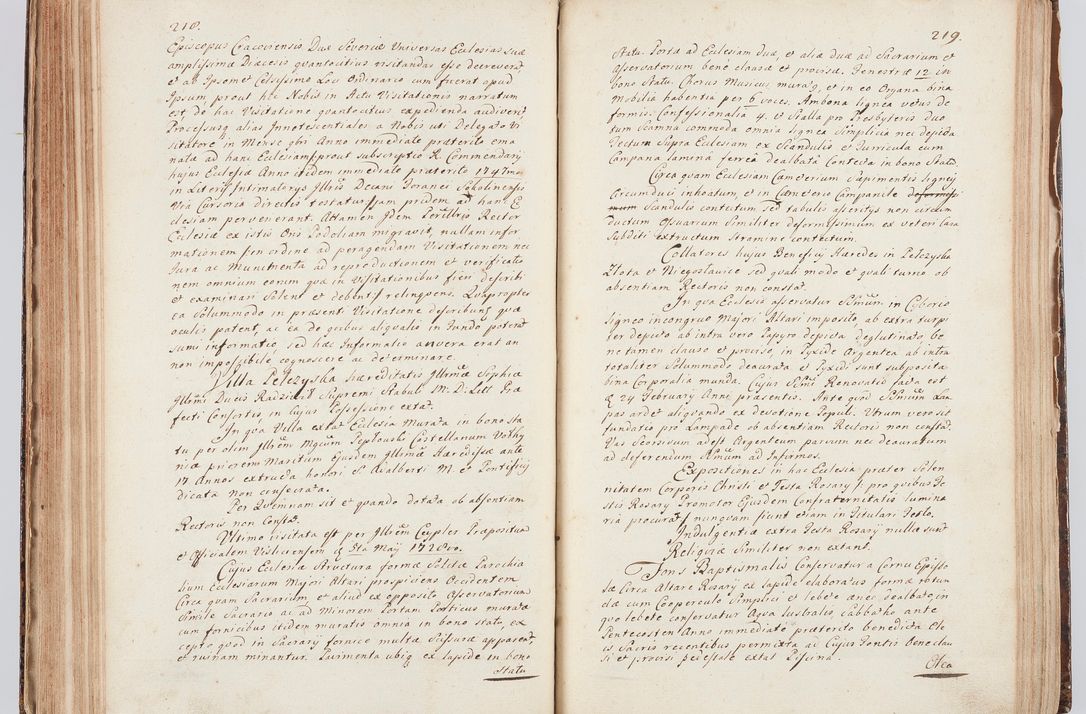 218.
Episcopus Cracoviensis Dux Severiæ Universas Ecclesias suæ
amplissimæ Diæcesis quantocitius visitandas esse decreverit
et ab Ipsomet Celsissimo Loci Ordinario cum fuerat apud
Ipsum, prout hæc Nobis in Actu Visitationis narratum
est, de hac Visitatione quantocitius expedienda audiverit
Processusq alias Innotescentiales a Nobis uti Delegato Vi
sitatore in Mense 9bri Anno immediate præterito ema
nata ad hanc Ecclesiam /prout subscriptio R. Commendarij
hujus Ecclesiæ Anno eodem immediate præterito 1747mo
in Literis Intimatorijs Illris Decani Foranei Sokolinensis
Via Cursoria directis testatur/ jam pridem ad hanc E
clesiam pervenerant. Attamen Idem Perillris Rector
Ecclesiæ ex istis Oris Podoliam migravit, nullam infor
mationem /in ordine ad peragendam Visitationem nec
Jura ac Munimenta ad reproductionem et verificatio
nem omnium eorum quæ in Visitationibus fieri describi
et examinari solent et debent/ relinquens. Quapropter
ea solummodo in præsenti Visitatione describunt quæ
oculis patent, ac ea de quibus aliqualis in fundo potest
sumi informatio, sed hæc Informatio an vera erat an
non impossibile cognoscere ac determinare.
Villa Pełczyska hæreditatis Illrmæ Sophiæ
Illrmi Ducis Radziwił Supremi Stabuli M. D. Litt Præ
fecti Consortis, in Cujus Possessione extat.
In qva Villa extat Ecclesia Murata in bono sta
tu per olim Illrem Mgcum Peptowski Castellanum Volhy
niæ priorem Maritum Ejusdem Illrmæ Hæredissæ ante
17 Annos extructa honori S. Adalberti M. et Pontificij
dicata non consecrata.
Per Quemnam sit et quando dotata ob absentiam
Rectoris non Constat.
Ultimo visitata est per Illrem Ceypler Præpositum
et Officialem Visliciensem q 5ta Maij 1728vo.
Cujus Ecclesiæ Structura formæ solitæ Parochia
lium Ecclesiarum Majori Altari prospiciens Occidentem
Circa quam Sacrarium, et aliud ex opposito Asservatorium
Simile Sacrario ac ad Minorem Portam Porticus murata
cum fornicibus itidem muratis omnia in bono statu, ex
cepto quod in Sacrarij fornice multæ scissuræ apparent
et ruinam minantur. Pavimenta ubiq ex lapide in bono
Statu

219.
Statu. Portæ ad Ecclesiam duæ, et aliæ duæ ad Sacrarium et
Asservatorium bene clausæ et provisæ. Fenestræ 12 in
bono statu, Chorus Musicus muratq, et in eo Organa bina
Mobilia habentia per 6 voces. Ambona lignea vetus de
formis: Confessionalia 4. et Stalla pro Presbyteris duo
tum Scamna commoda omnia lignea simplicia nec depicta
Tectum supra Ecclesiam ex Scandulis et Turricula cum
Campana lamina ferrea dealbata Contecta in bono Statu.
Circa quam Ecclesiam Cæmeterium Sapimentis ligneis
circumduci inchoatum, et in Cæmeterio Campanile deformissi
mum Scandulis contectum sed tabulis asseritijs non circum
ductum Ossuarium similiter deformissimum ex veteri Cara
Subditi extructum Stramine contectum.
Collatores hujus Beneficij Hæredes in Pełczyska
Złota et Niegosławice sed quali modo et quali turno ob
absentiam Rectoris non constat.
In qva Ecclesia asservatur SSmum in Ciborio
ligneo incongruo Majori Altari imposito, ab extra turpi
ter depicto ab intra vero Papyro depicta deglutinato, be
ne tamen clauso et proviso, in Pyxide Argentea ab intra
totaliter solummodo deaurata et Pyxidi sunt supposita
bina Corporalia munda. Cujus SSmi Renovatio facta est
q 24 February Anni præsentis. Ante quod SSmum Lam
pas ardet aliquando ex devotione Populi. Utrum vero sit
fundatio pro Lampade ob absentiam Rectoris non constat.
Vas Seorsivum adest Argenteum parvum nec deauratum
ad deferendum SSmum ad Infirmos.
Expositiones in hac Ecclesia præter Solen
nitatem Corporis Christi et Festa Rosary / pro quibus Fe
stis Rosary Promotor Ejusdem Confraternitatis lumina
ria procurat / nunqvam fiunt etiam in Titulari Festo.
Indulgentiæ extra Festa Rosarij nullæ sunt
Religiæ similiter non extant.
Fons Baptismalis Conservatur a Cornu Episto
læ Circa Altare Rosary ex lapide elaboratus formæ rotun
dæ cum Cooperculo simplici et lebete ænec dealbato, in
quo lebete conservatur Aqva lustralis, Sabbatho ante
Pentecosten Anno immediate præterito benedicta Ole
is Sacris recentibus permixta ac Cujus Fontis bene clau
si et provisi pedestale extat Piscina.
Olea